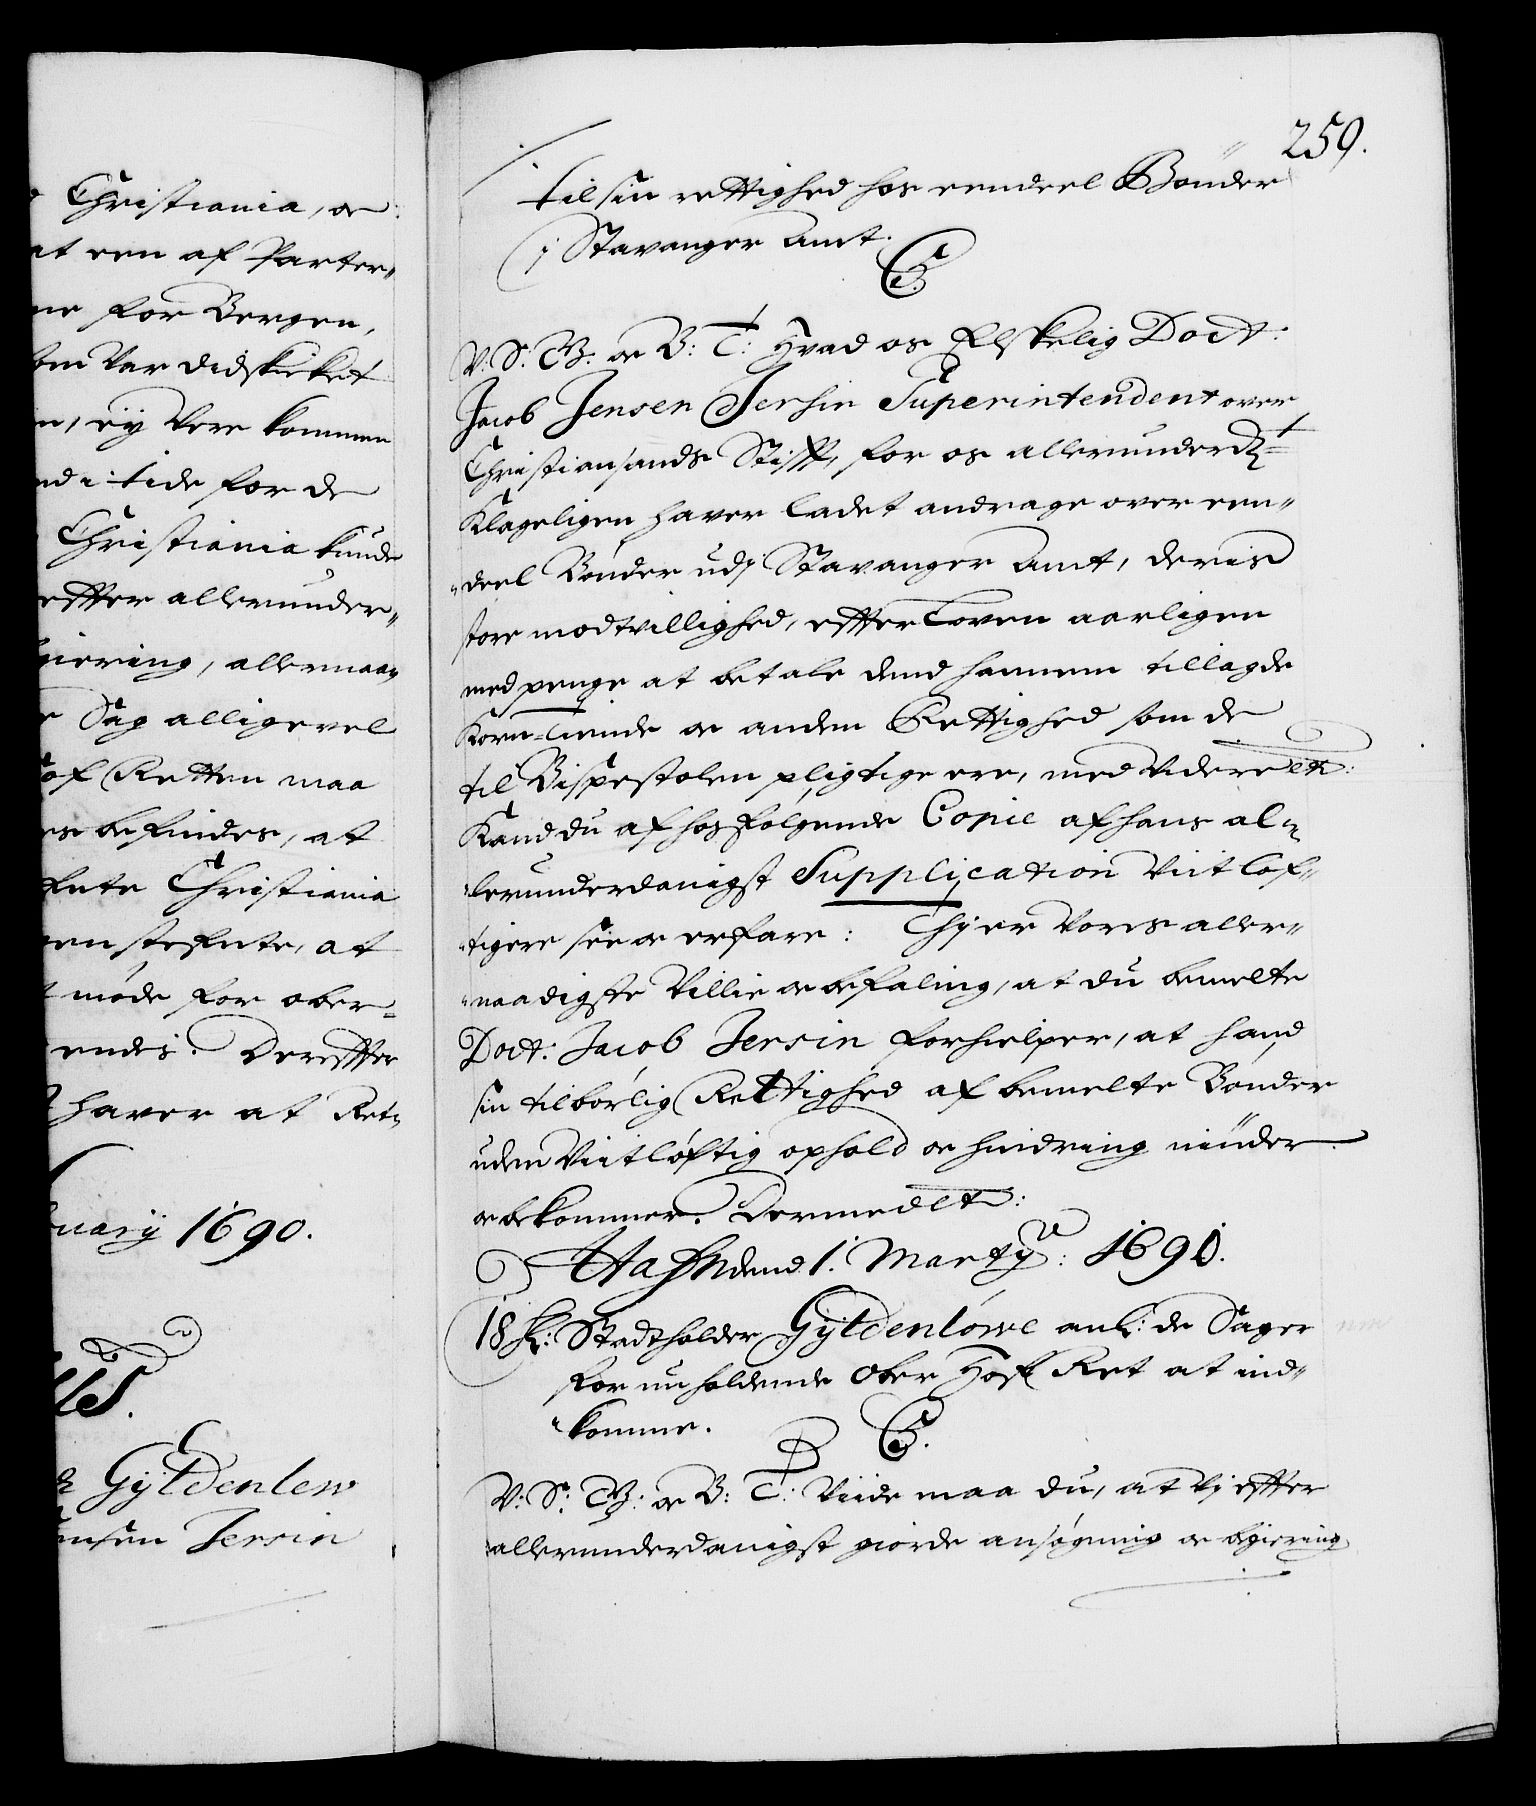 Christiania, oc
at een af Parter„
ne for Bergen,
som var didskicket
n, ey vere kommen
nd i tide for de
Christiania kunde
effter allerunder„
giering, allernaa„
Sag alligevel
af Retten maa
es befindes, at
Christiania
stefnte, at
møde for ober„
endis. Dereffter
haver at Ret„
uarij 1690.
Gyldenlew
ensen Jersin
259.
til sin rettighed hos eendeel Bønder
i Stavanger Amt.
C5.
V: S: G: oc B: T: Hvad os Elskelig Doct:
Jacob Jensen Jersin Superintendent over
Christiansands Stifft, for os allerunderd:
Klageligen haver ladet andrage over een„
„deel Bønder udj Stavanger Amt, deris
store modtvillighed, effter Loven aarligen
med penge at betale dend hannem tillagde
Korn-Tiende oc anden Rettighed som de
til Bispestolen pligtige ere, med videre etc:
Kand du af hosfølgende Copie af hans al„
„lerunderdanigst Supplication viitløf„
„tigere see oc erfare: Thj er Vores aller„
„naadigste Villie oc befaling, at du bemelte
Doct: Jacob Jersin forhielper, at hand
sin tilbørlig Rettighed af bemelte Bønder
uden viitløftig ophold oc hindring niuder
oc bekommer. Dermed etc:
Hafn dend 1. Martij: 1690.
Stadtholder Gyldenlöwe anl: de Sager
for nu holdende Ober Hoff Ret at ind„
„komme.
C5.
V: S: G: oc B: T: Viide maa du, at vj effter
allerunderdanigst giorde ansøgning oc begiering